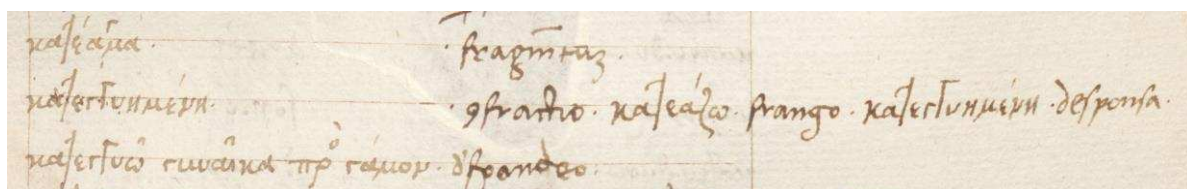 κατέαμα · fragm̅tuꝫ ·
κατεγγυημένη · ꝯfractio · κατεάζω · frango · κατεγγυημένη · desponsa ·
κατεγγυῶ γυναῖκα πρὸ γάμον · d'spondeo ·